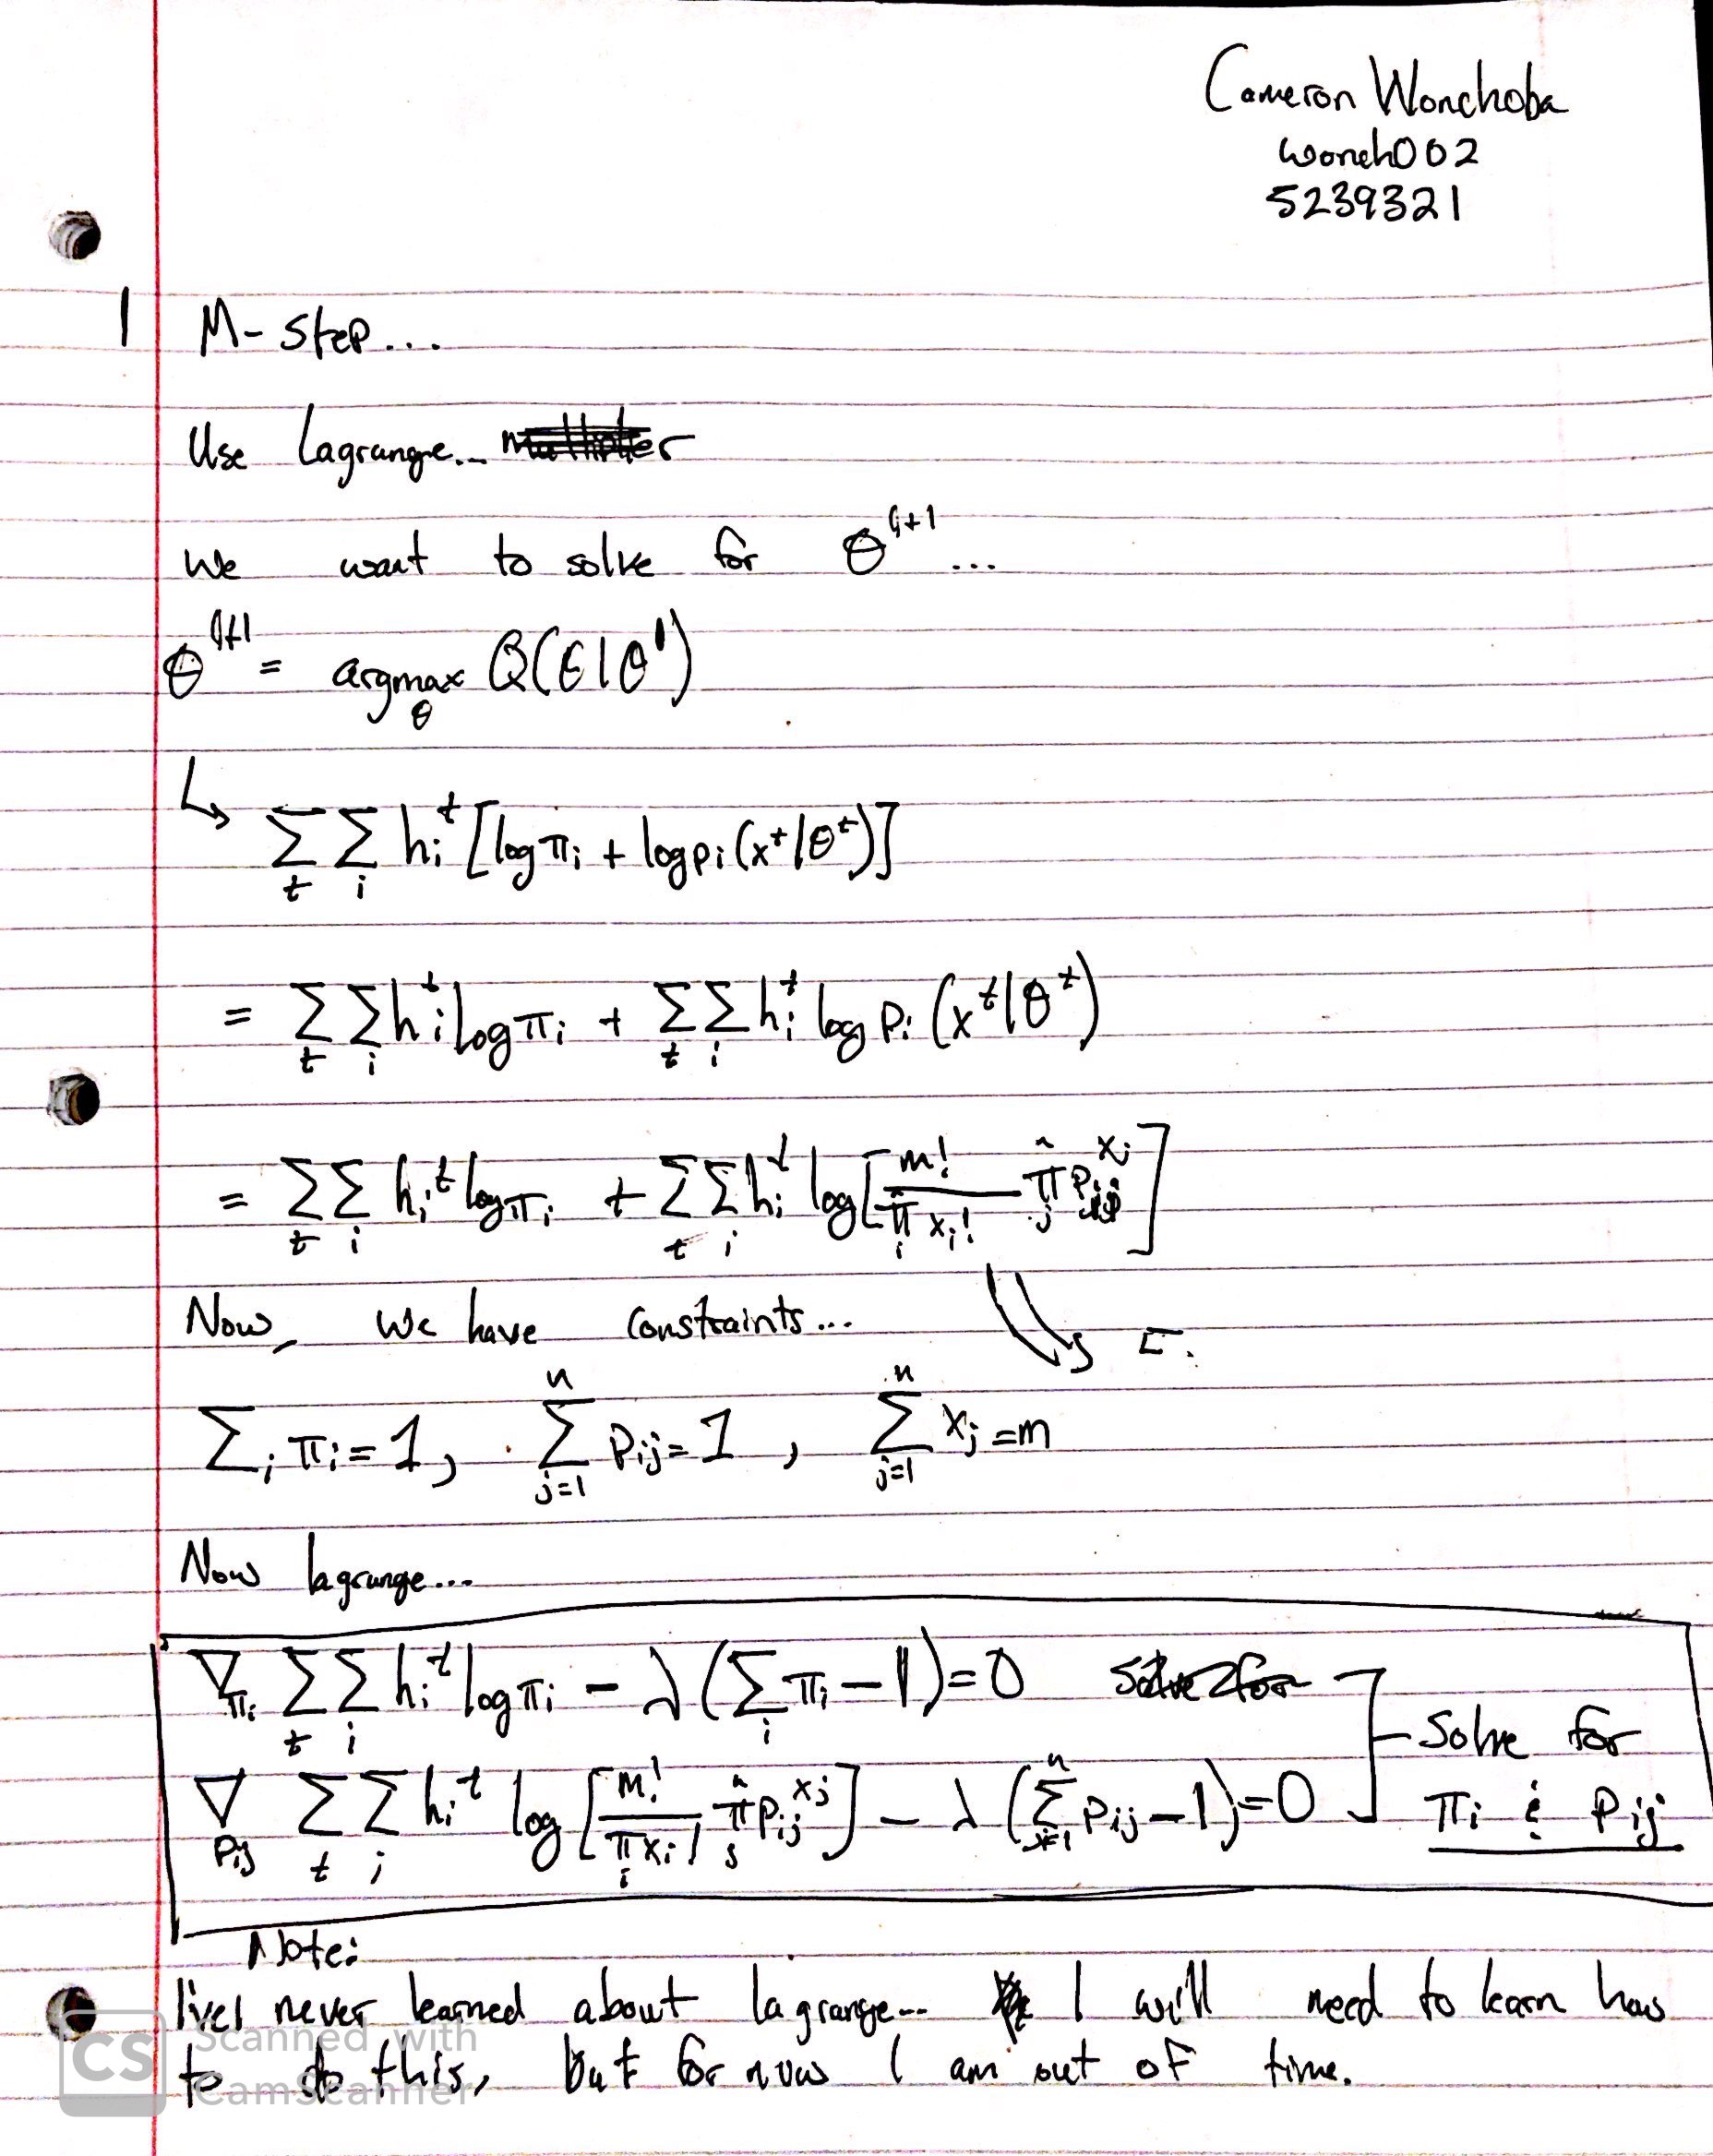 Cameron Wonchoba
wonch002
5239321
1 M-step...
Use Lagrange...
We want to solve for θ^{l+1} ...
θ^{l+1} = argmax_θ Q(θ|θ^l)
↳ Σ_t Σ_i h_i^t [log π_i + log p_i(x^t|θ^t)]
= Σ_t Σ_i h_i^t log π_i + Σ_t Σ_i h_i^t log p_i(x^t|θ^t)
= Σ_t Σ_i h_i^t log π_i + Σ_t Σ_i h_i^t log[m!/(Π_i^n x_i!) Π_j^n p_ij^{x_j}]
Now, we have constraints...
Σ_i π_i = 1, Σ_{j=1}^n p_ij = 1, Σ_{j=1}^n x_j = m
Now lagrange...
∇_{π_i} Σ_t Σ_i h_i^t log π_i − λ(Σ_i π_i − 1) = 0
∇_{p_ij} Σ_t Σ_i h_i^t log[m!/(Π_i x_i!) Π_j^n p_ij^{x_j}] − λ(Σ_{j=1}^n p_ij − 1) = 0
Solve for
π_i & p_ij
Note:
I've never learned about lagrange... I will need to learn how
to do this, but for now I am out of time.
CS Scanned with
CamScanner